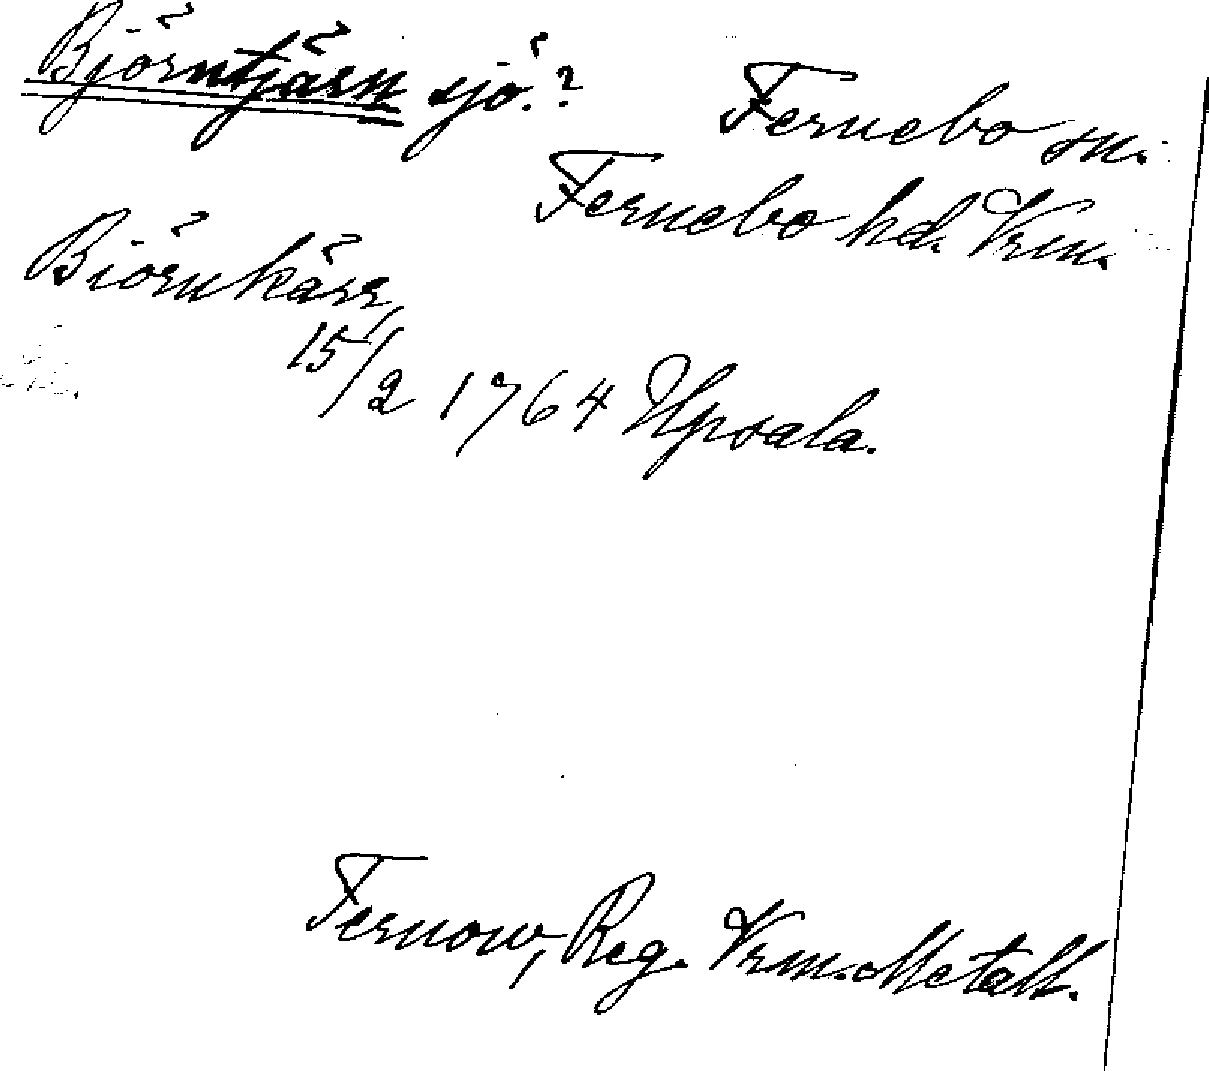 Björntjärn sjö.? Fernebo sn.
Fernebo hd. Vrm.
Biörnkärr,
15/2 1764 Upsala.
Fernow, Reg. Vrm. Metall.